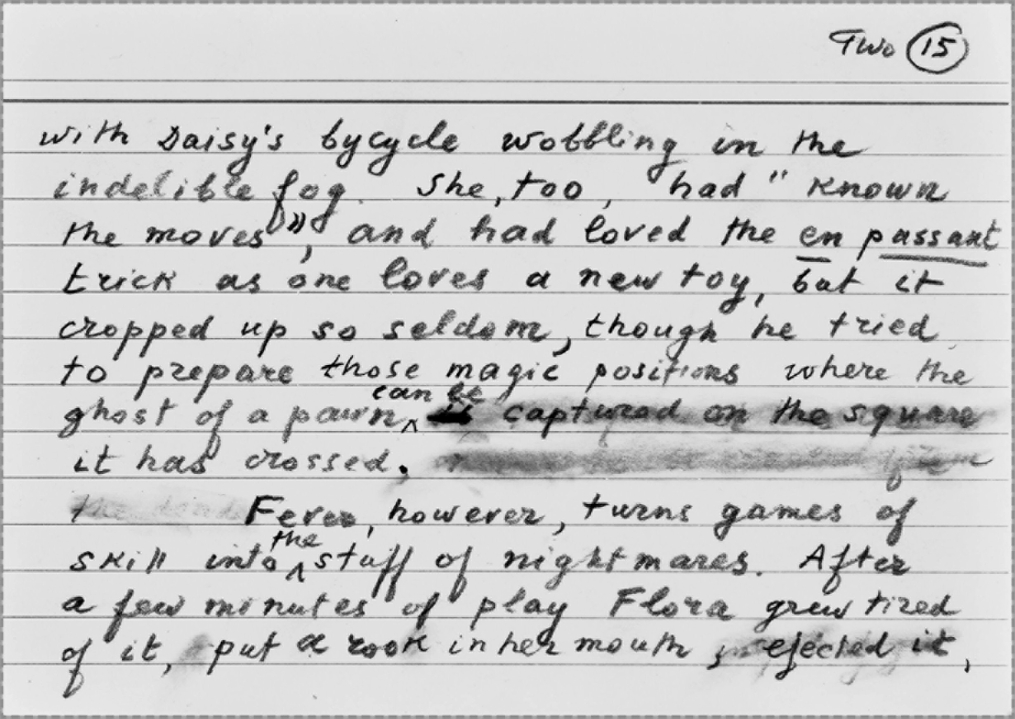 Two 15
with Daisy's bycycle wobbling in the
indelible fog. She, too, had "known
the moves", and had loved the en passant
trick as one loves a new toy, but it
cropped up so seldom, though he tried
to prepare those magic positions where the
ghost of a pawn can be captured on the square
it has crossed.
Fever, however, turns games of
skill into the stuff of nightmares. After
a few minutes of play Flora grew tired
of it, put a rook in her mouth, ejected it,